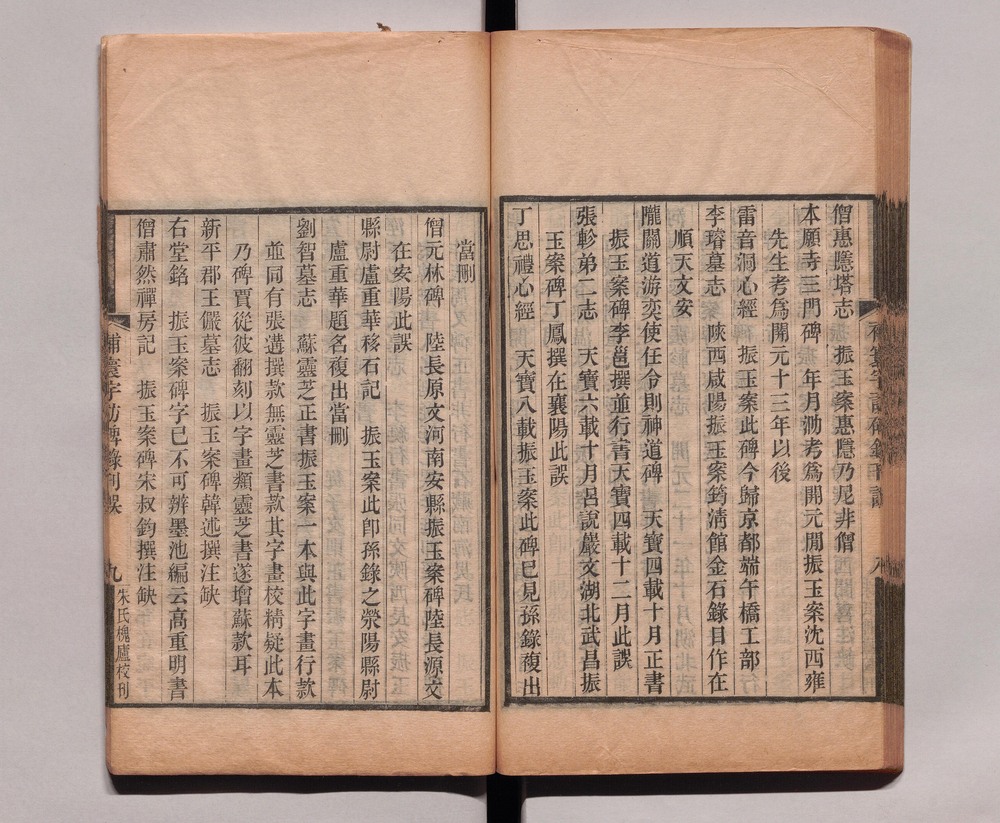 僧惠隱塔志 振玉案惠隱乃尼非僧
本願寺三門碑 年月泐考爲開元閒振玉案沈西雍
先生考爲開元十三年以後
雷音洞心經 振玉案此碑今歸京都端午橋工部 行
李璿墓志 陝西咸陽振玉案筠淸館金石錄目作在
順天文安
隴關道游奕使任令則神道碑 天寶四載十月正書
振玉案碑李邕撰並行書天寶四載十二月此誤
張軫弟二志 天寶六載十月呂說巖文湖北武昌振
玉案碑丁鳳撰在襄陽此誤
丁思禮心經 天寶八載振玉案此碑已見孫錄複出
八
當刪
僧元林碑 陸長原文河南安縣振玉案碑陸長源文
在安陽此誤
縣尉盧重華移石記 振玉案此卽孫錄之滎陽縣尉
盧重華題名複出當刪
劉智墓志 蘇靈芝正書振玉案一本與此字畫行款
並同有張遘撰款無靈芝書款其字畫校精疑此本
乃碑賈從彼翻刻以字畫類靈芝書遂增蘇款耳
新平郡王儼墓志 振玉案碑韓述撰注缺
右堂銘 振玉案碑字已不可辨墨池編云高重明書
僧肅然禪房記 振玉案碑宋叔鈞撰注缺
補寰宇訪碑錄刊誤 九 朱氏槐廬校刊